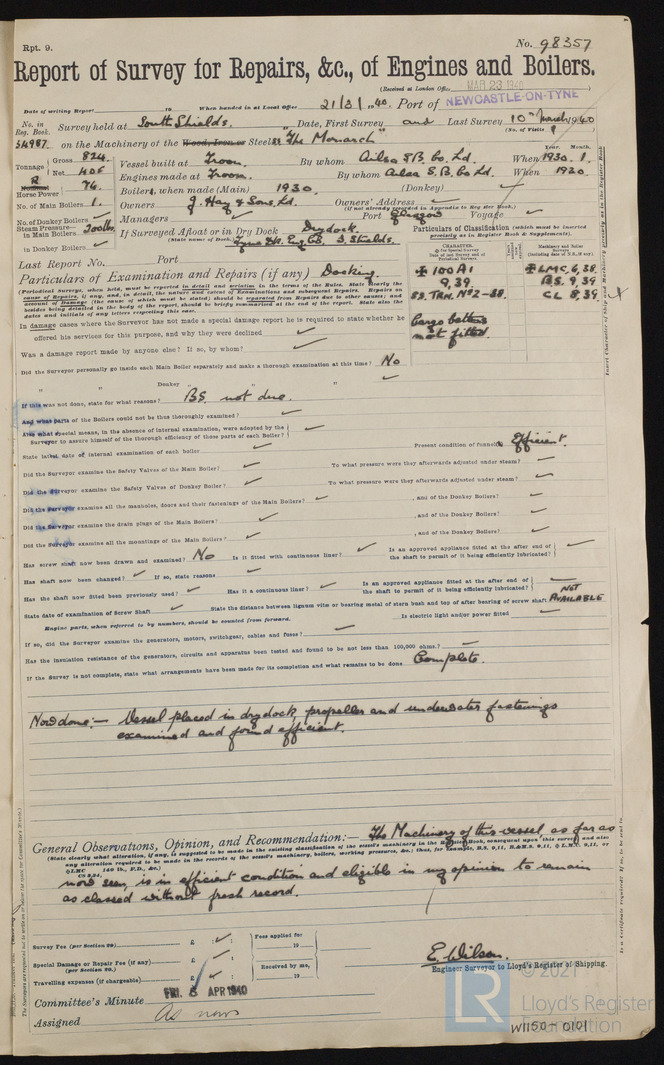 Rpt. 9.
No. 98357
Report of Survey for Repairs, &c., of Engines and Boilers.
(Received at London Office
MAR 23 1940
Date of writing Report 19 When handed in at Local Office 21/3/1940. Port of NEWCASTLE-ON-TYNE
No. in Reg. Book. Survey held at South Shields. Date, First Survey and Last Survey 10th March 1940
(No. of Visits 1
34987. on the Machinery of the Wood, Iron or Steel "The Monarch"
Tonnage Gross 824. Net 405
Vessel built at Troon. By whom Ailsa S.B. Co. Ld. When 1930. 1.
Engines made at Troon. By whom Ailsa S.B. Co Ld. When 1930.
Horse Power 76.
Boilers, when made (Main) 1930. (Donkey)
No. of Main Boilers 1.
Owners J. Hay & Sons, Ld. Owners' Address
(if not already recorded in Appendix to Register Book.)
No. of Donkey Boilers
Managers Port Glasgow Voyage
Steam Pressure in Main Boilers 200 lbs
in Donkey Boilers
If Surveyed Afloat or in Dry Dock Drydock.
(State name of Dock.) Tyne Dk. Eng Co. S. Shields.
Particulars of Classification (which must be inserted precisely as in Register Book & Supplements).
Last Report No. Port
Particulars of Examination and Repairs (if any) Docking.
+ 100 A1
9,39
SS. Trn. No 2-38.
+ LMC. 6,38.
BS. 9,39
CL 8,39
Cargo battens not fitted
In damage cases where the Surveyor has not made a special damage report he is required to state whether he
offered his services for this purpose, and why they were declined
Was a damage report made by anyone else? If so, by whom?
Did the Surveyor personally go inside each Main Boiler separately and make a thorough examination at this time? No
" " Donkey " " "
If this was not done, state for what reasons? BS not due.
And what parts of the Boilers could not be thus thoroughly examined?
Also what special means, in the absence of internal examination, were adopted by the
Surveyor to assure himself of the thorough efficiency of those parts of each Boiler?
State latest date of internal examination of each boiler Present condition of funnels Efficient.
Did the Surveyor examine the Safety Valves of the Main Boiler? To what pressure were they afterwards adjusted under steam?
Did the Surveyor examine the Safety Valves of Donkey Boiler? To what pressure were they afterwards adjusted under steam?
Did the Surveyor examine all the manholes, doors and their fastenings of the Main Boilers? , and of the Donkey Boilers?
Did the Surveyor examine the drain plugs of the Main Boilers? , and of the Donkey Boilers?
Did the Surveyor examine all the mountings of the Main Boilers? , and of the Donkey Boilers?
Has screw shaft now been drawn and examined? No Is it fitted with continuous liner? Is an approved appliance fitted at the after end of the shaft to permit of it being efficiently lubricated?
Has shaft now been changed? If so, state reasons
Has the shaft now fitted been previously used? Has it a continuous liner? Is an approved appliance fitted at the after end of the shaft to permit of it being efficiently lubricated?
State date of examination of Screw Shaft State the distance between lignum vitæ or bearing metal of stern bush and top of after bearing of screw shaft NOT AVAILABLE
Engine parts, when referred to by numbers, should be counted from forward. Is electric light and/or power fitted
If so, did the Surveyor examine the generators, motors, switchgear, cables and fuses?
Has the insulation resistance of the generators, circuits and apparatus been tested and found to be not less than 100,000 ohms?
If the Survey is not complete, state what arrangements have been made for its completion and what remains to be done Complete.
Now done:— Vessel placed in drydock, propeller and underwater fastenings
examined and found efficient.
General Observations, Opinion, and Recommendation:— The Machinery of this vessel as far as
now seen, is in efficient condition and eligible in my opinion to remain
as classed without fresh record.
Survey Fee (per Section 29) £ : :
Fees applied for 19
Special Damage or Repair Fee (if any) (per Section 29.) £ : :
Received by me, 19
Travelling expenses (if chargeable) £ : :
E. Wilson.
Engineer Surveyor to Lloyd's Register of Shipping.
Committee's Minute FRI. 5 APR 1940
Assigned As now
© 2021
LR
Lloyd's Register
Foundation
W1150-0101